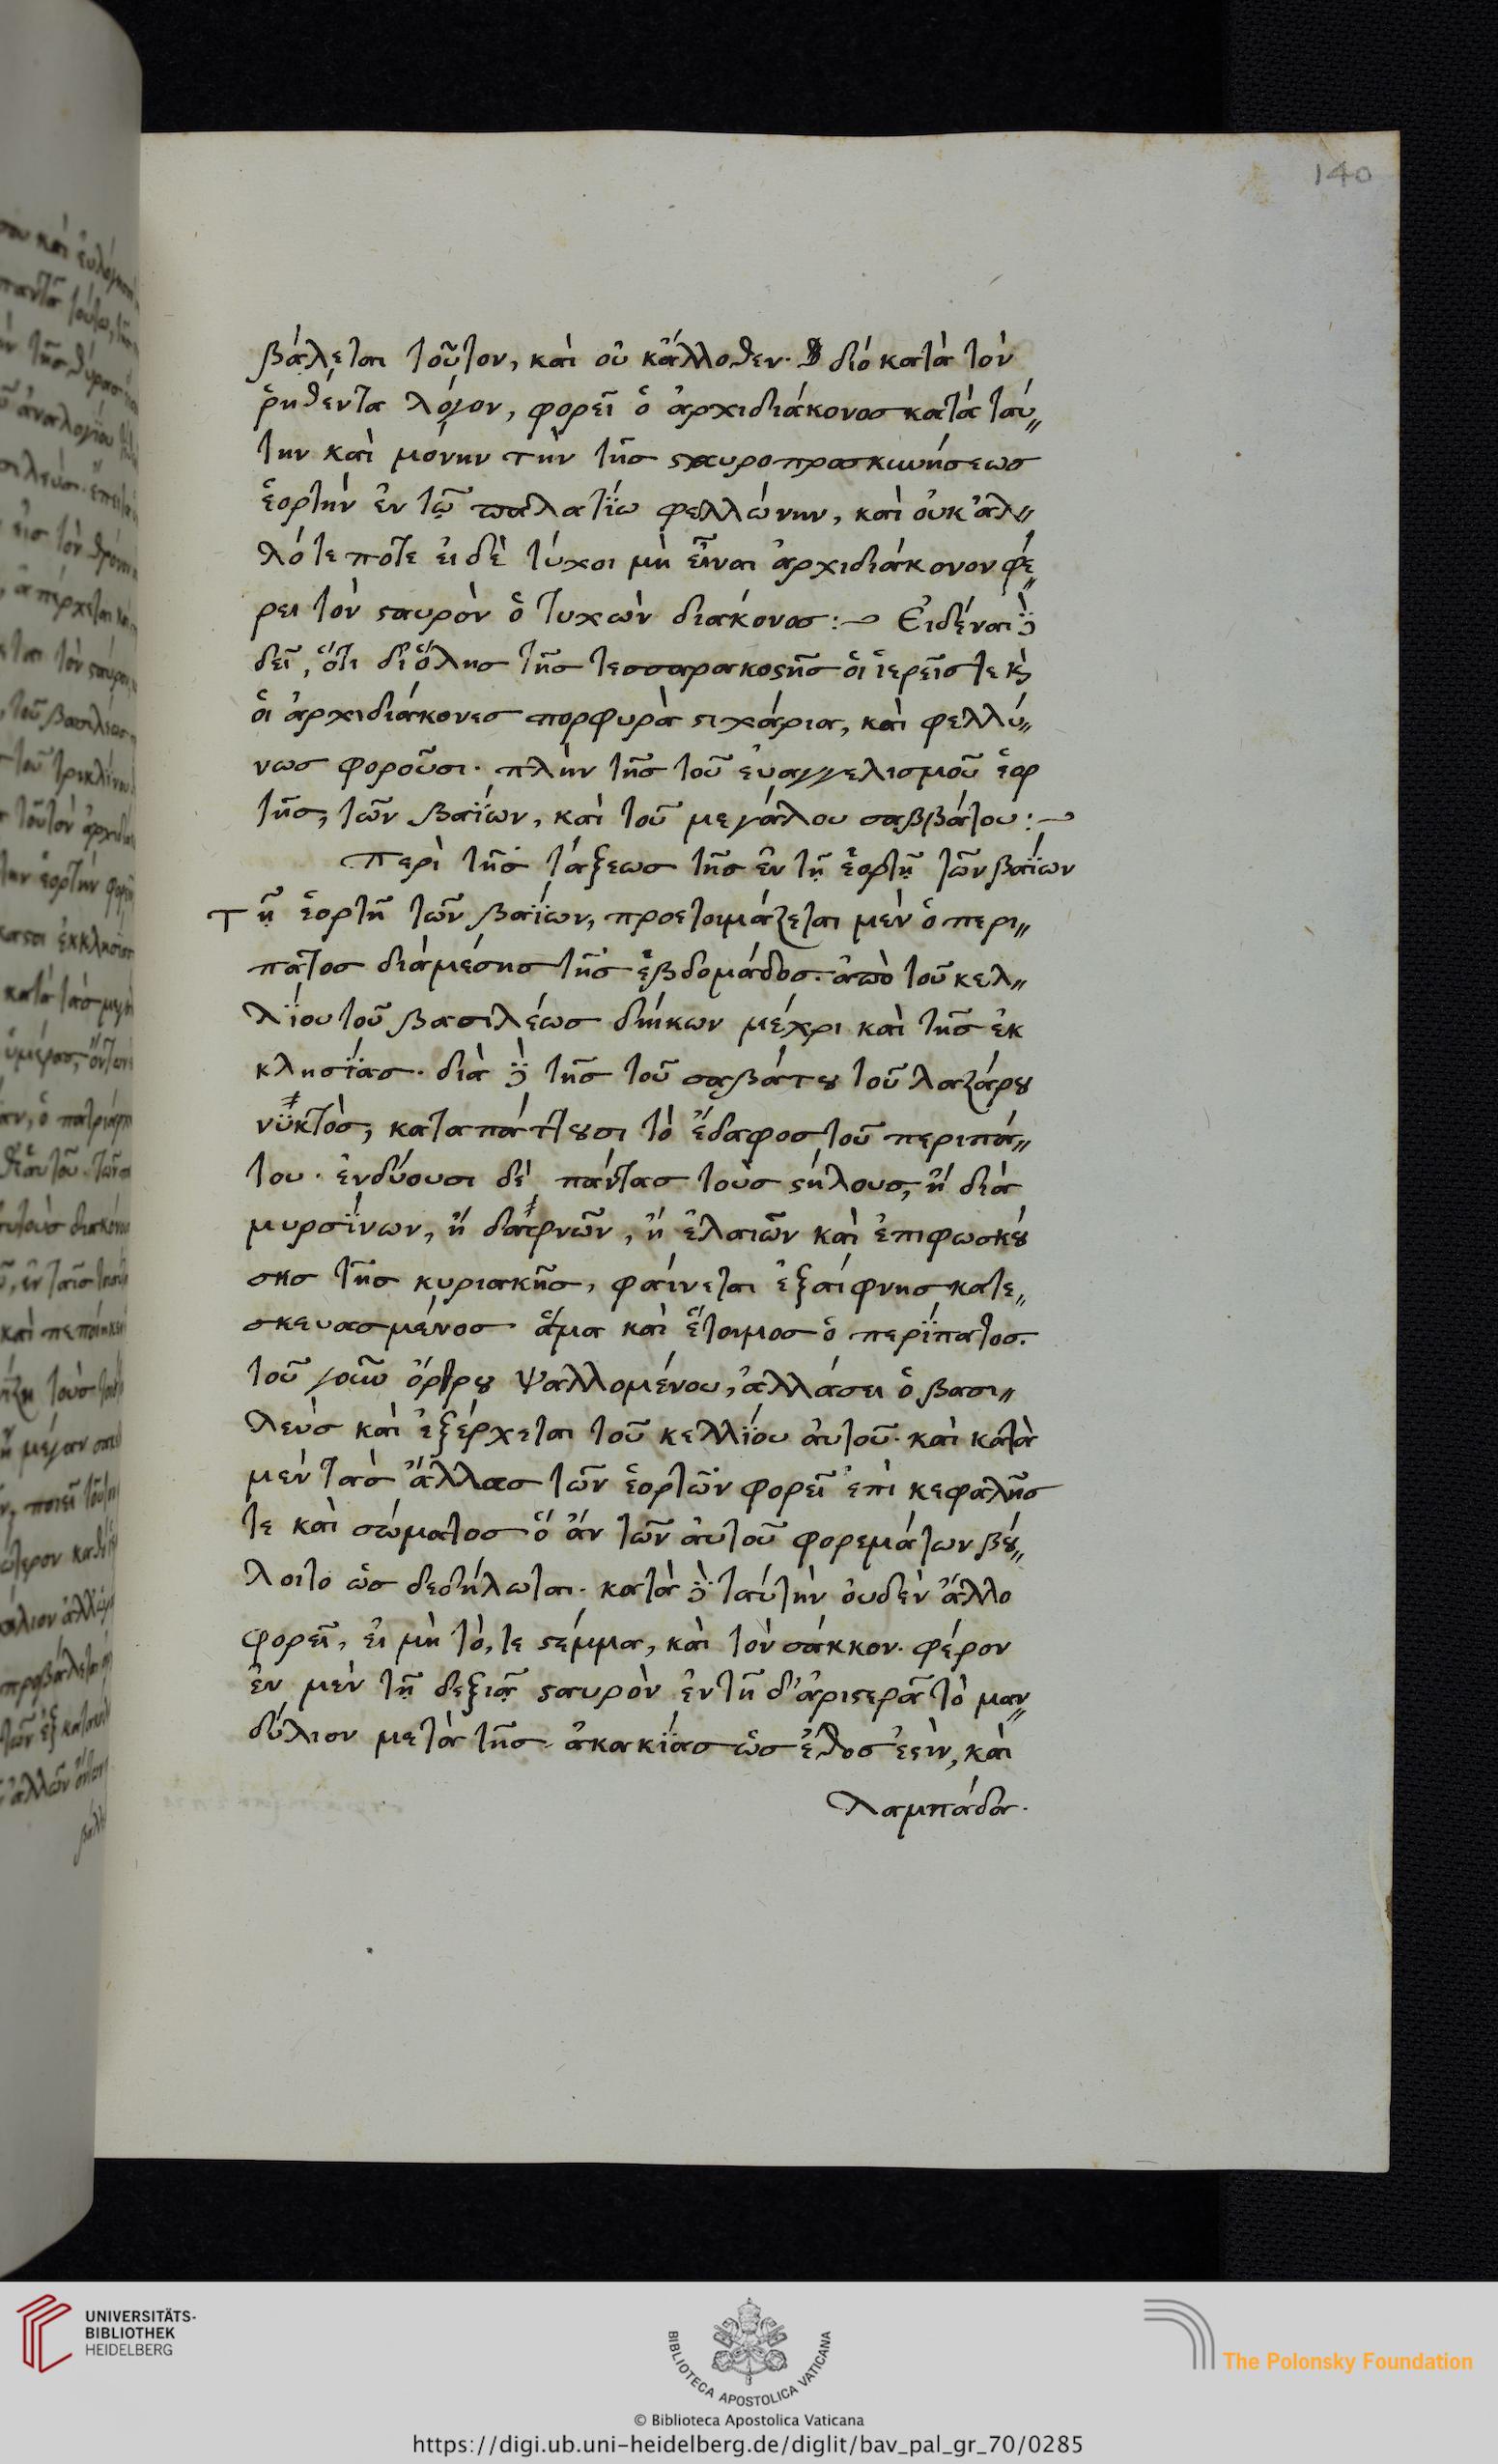 140
βάλεται τοῦτον, καὶ οὐ κἄλλοθεν. διό κατὰ τὸν
ῥηθέντα λόγον, φορεῖ ὁ ἀρχιδιάκονος κατὰ ταύ„
την καὶ μόνην τὴν τῆς σταυροπροσκυνήσεως
ἑορτὴν ἐν τῷ παλατίω φελλώνην, καὶ οὐκ ἄλ„
λότε ποτε εἰ δὲ τύχοι μὴ εἶναι ἀρχιδιάκονον φέ„
ρει τὸν σταυρὸν ὁ τυχὼν διάκονος :~ Εἰδέναι δὲ
δεῖ, ὅτι δι' ὅλης τῆς τεσσαρακοστῆς οἱ ἱερεῖς τε καὶ
οἱ ἀρχιδιάκονες πορφυρὰ στιχάρια, καὶ φελλύ„
νως φοροῦσι. πλὴν τῆς τοῦ εὐαγγελισμοῦ ἑορ
τῆς, τῶν βαΐων, καὶ τοῦ μεγάλου σαββάτου :~
Περὶ τῆς τάξεως τῆς ἐν τῇ ἑορτῇ τῶν βαΐων
Τῇ ἑορτῇ τῶν βαΐων, προετοιμάζεται μὲν ὁ περι„
πατος διάμέσης τῆς ἑβδομάδος. ἀπὸ τοῦ κελ„
λΐου τοῦ βασιλέως διήκων μέχρι καὶ τῆς ἐκ
κλησΐας. διὰ δὲ τῆς τοῦ σαβάτου τοῦ λαζάρου
νϋκτὸς, καταπάττουσι τὸ ἔδαφος τοῦ περιπά„
του. ἐνδύουσι δὲ πάντας τοὺς στήλους, ἢ διὰ
μυρσΐνων, ἢ δαφνῶν, ἢ ἐλαιῶν καὶ ἐπιφωσκού
σης τῆς κυριακῆς, φαίνεται ἐξαίφνης κατε„
σκευασμένος ἅμα καὶ ἕτοιμος ὁ περΐπατος.
τοῦ γοῦν ὄρθρου ψαλλομένου, ἀλλάσει ὁ βασι„
λεὺς καὶ ἐξέρχεται τοῦ κελλΐου αὐτοῦ. καὶ κατὰ
μὲν τὰς ἄλλας τῶν ἑορτῶν φορεῖ ἐπὶ κεφαλῆς
τε καὶ σώματος ὃ ἂν τῶν αὐτοῦ φορεμάτων βού„
λοιτο ὡς δεδήλωται. κατὰ δὲ ταύτην οὐδὲν ἄλλο
φορεῖ, εἰ μὴ τό, τε στέμμα, καὶ τὸν σάκκον. φέρον
ἐν μὲν τῇ δεξιᾷ σταυρὸν ἐν τῇ δ' ἀριστερᾷ τὸ μαν„
δύλιον μετὰ τῆς ἀκακΐας ὡς ἔθος ἐστὶν, καὶ
λαμπάδα.
UNIVERSITÄTS-
BIBLIOTHEK
HEIDELBERG
BIBLIOTECA APOSTOLICA VATICANA
The Polonsky Foundation
© Biblioteca Apostolica Vaticana
https://digi.ub.uni-heidelberg.de/diglit/bav_pal_gr_70/0285